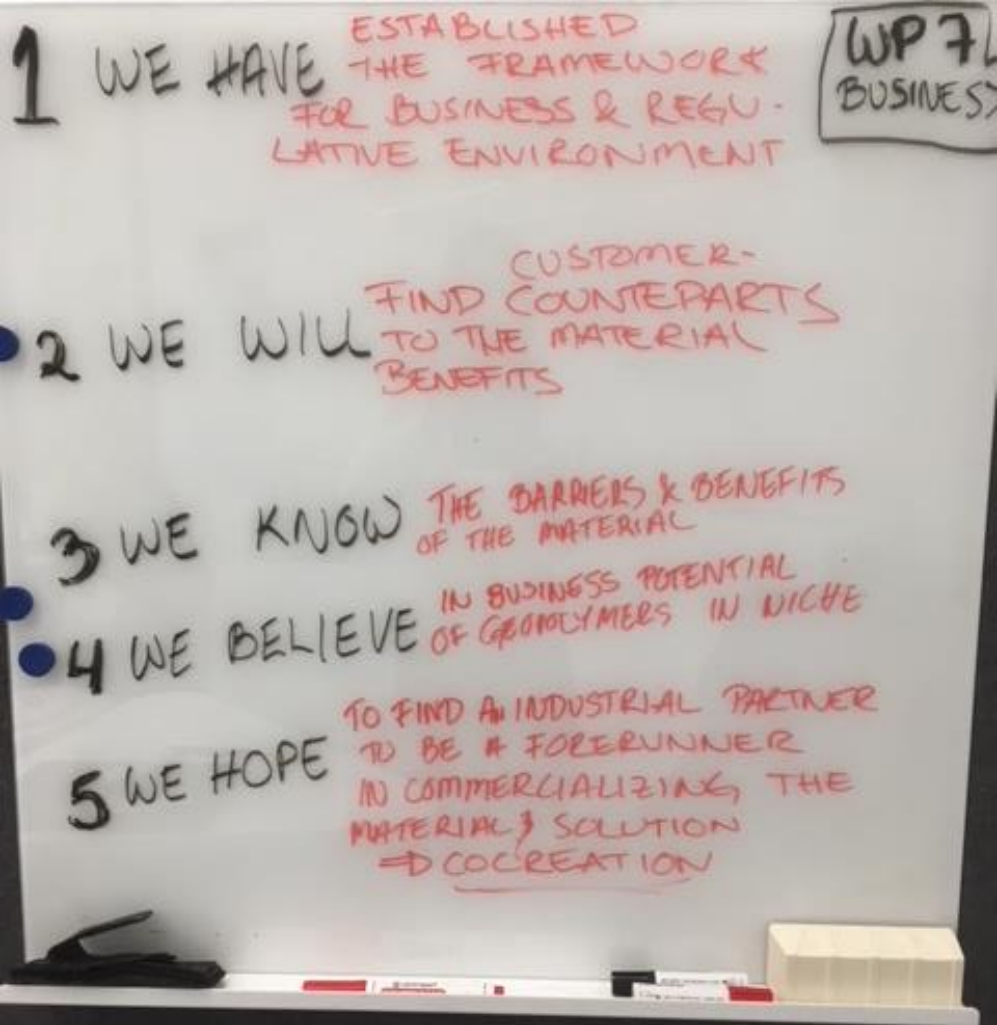 1 WE HAVE ESTABLISHED
THE FRAMEWORK
FOR BUSINESS & REGU-
LATIVE ENVIRONMENT
WP 7
BUSINESS
2 WE WILL CUSTOMER-
FIND COUNTERPARTS
TO THE MATERIAL
BENEFITS
3 WE KNOW THE BARRIERS & BENEFITS
OF THE MATERIAL
4 WE BELIEVE IN BUSINESS POTENTIAL
OF GEOPOLYMERS IN NICHE
5 WE HOPE TO FIND AN INDUSTRIAL PARTNER
TO BE A FORERUNNER
IN COMMERCIALIZING THE
MATERIAL & SOLUTION
⇒ COCREATION